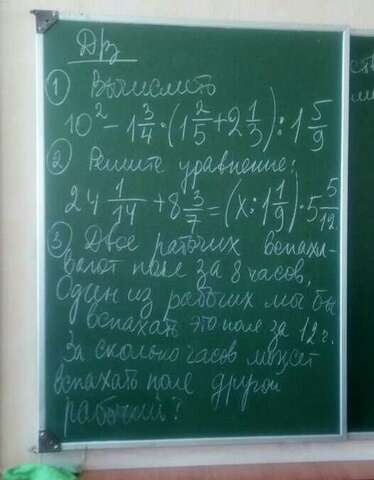 Д/з
① Вычислить
10² - 1 3/4 · (1 2/5 + 2 1/3) : 1 5/9
② Решите уравнение:
24 1/14 + 8 3/7 = (x : 1 1/9) · 5 5/12
③ Двое рабочих вспахи-
вают поле за 8 часов.
Один из рабочих мог бы
вспахать это поле за 12 ч.
За сколько часов может
вспахать поле другой
рабочий?